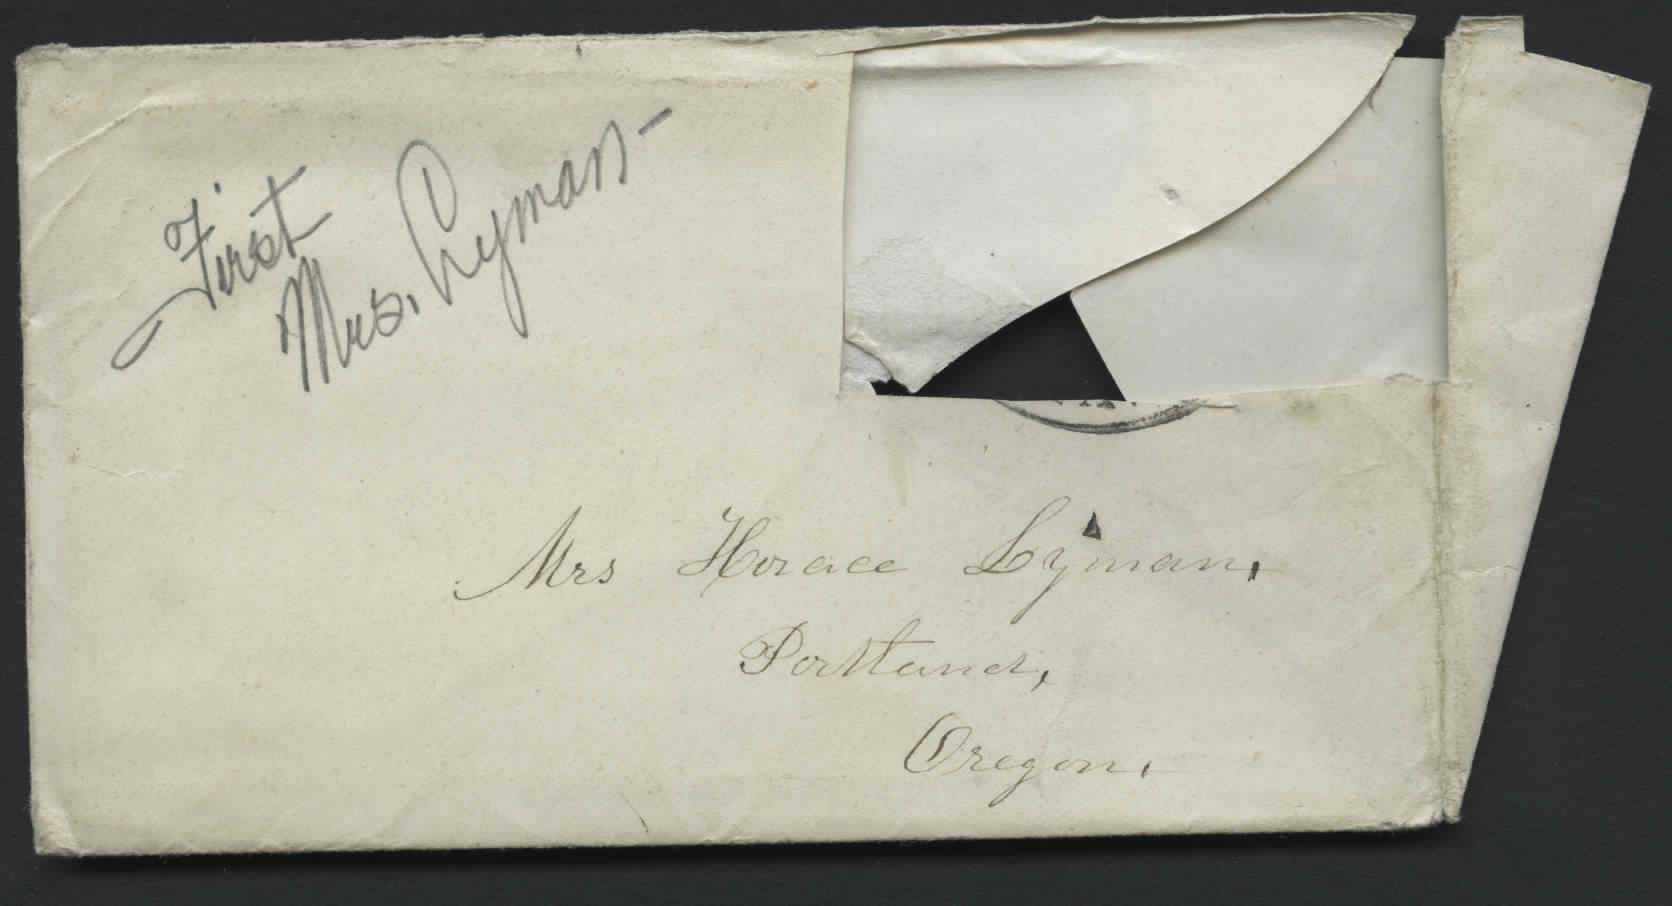 First
Mrs. Lyman-
Mrs Horace Lyman,
Portland,
Oregon.